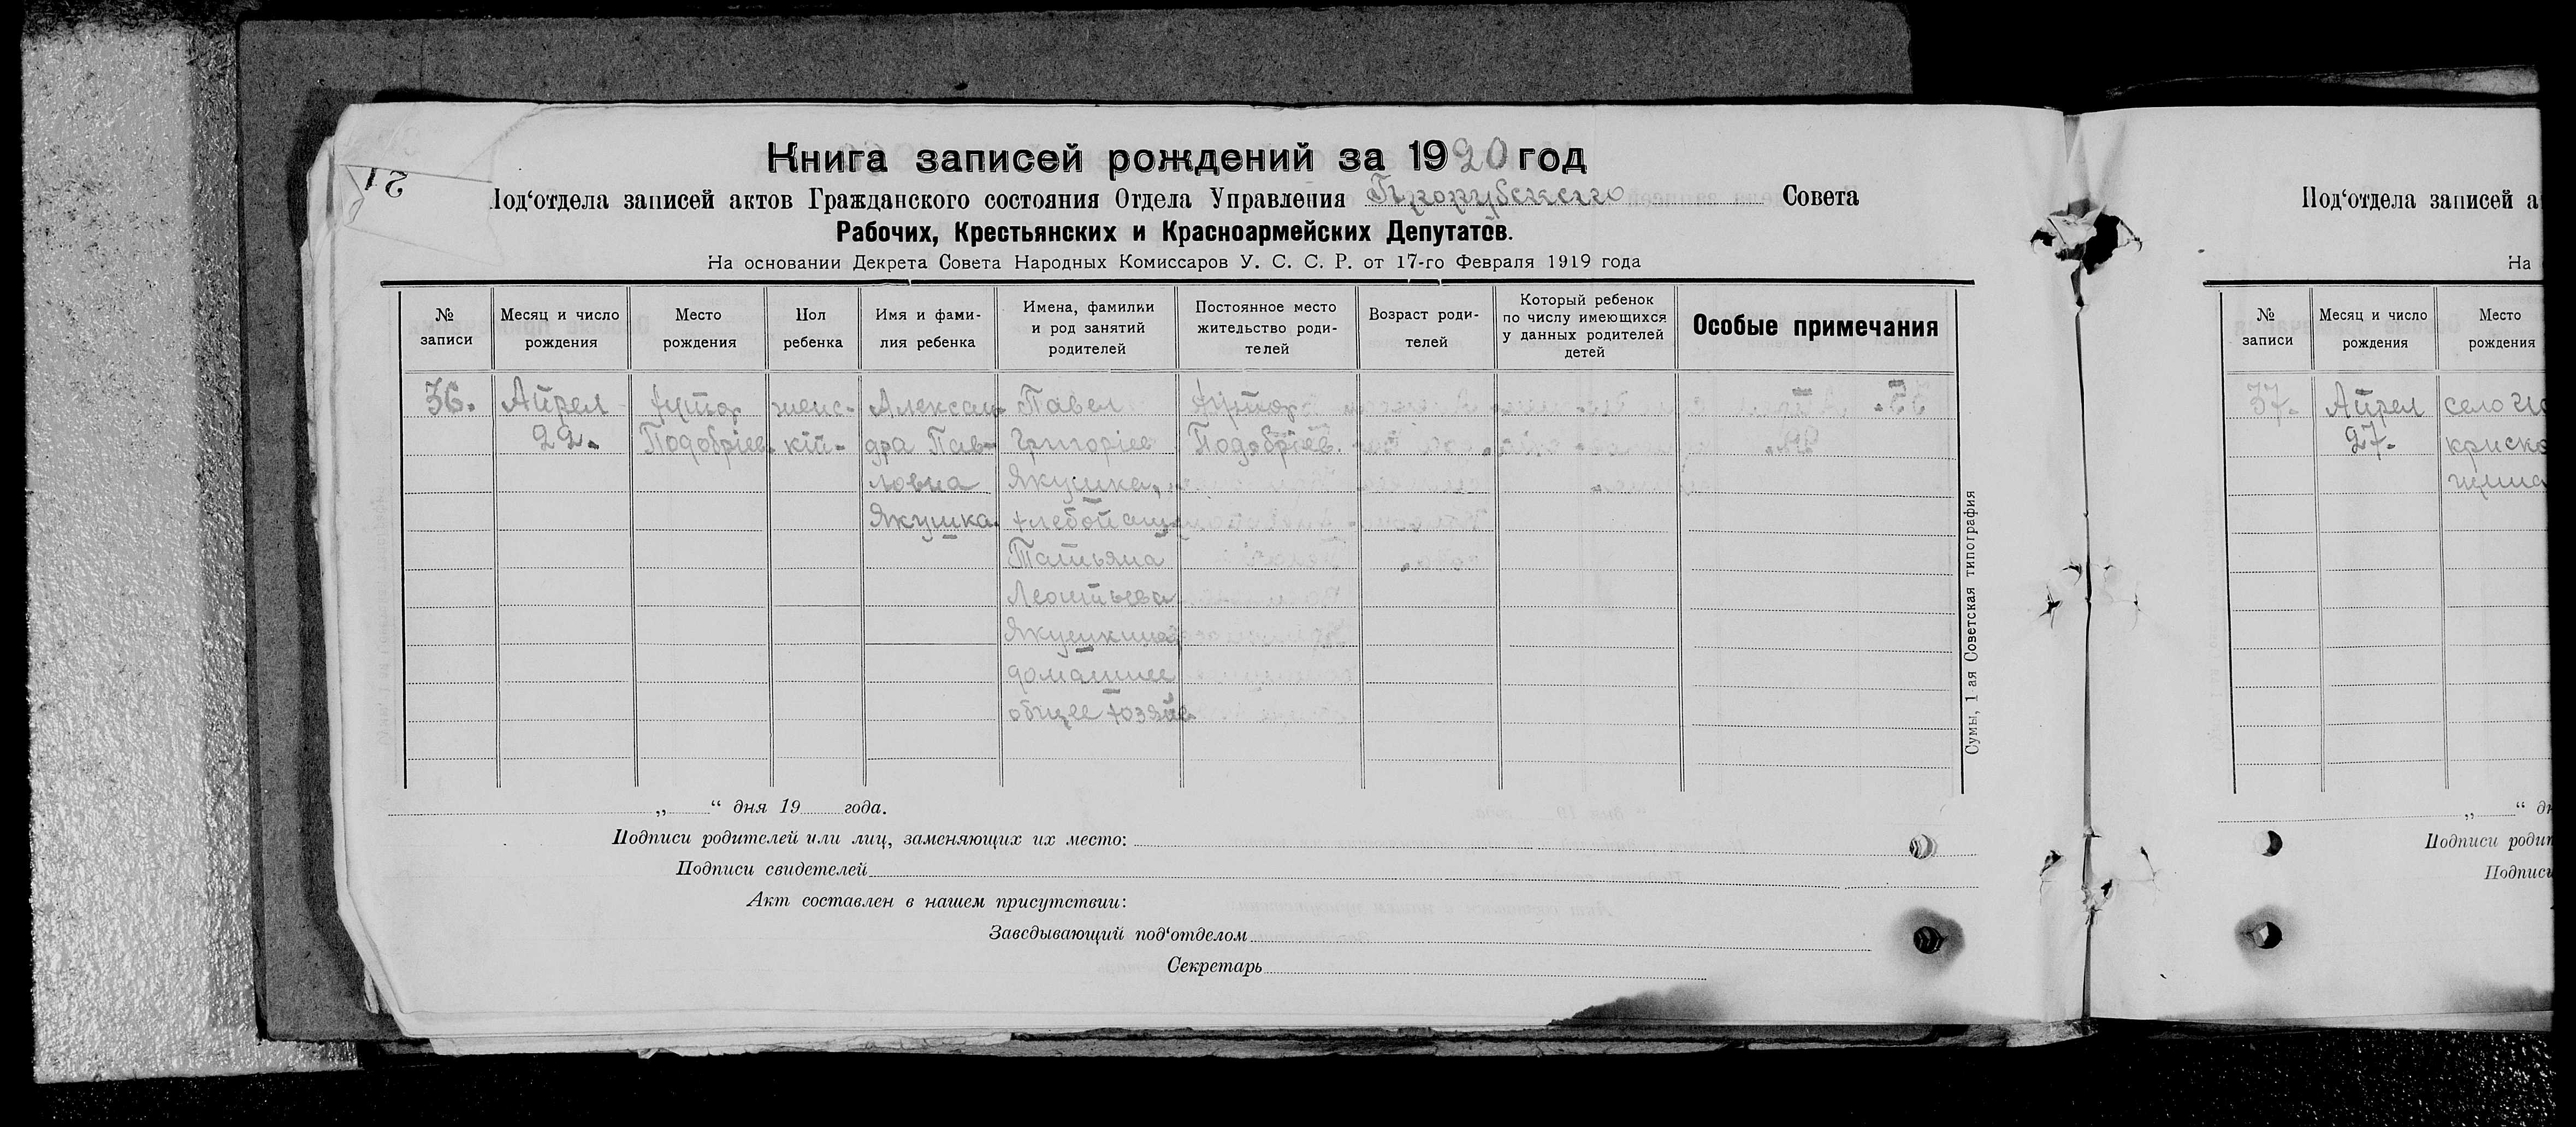 21
Книга записей рождений за 1920 год
Под‘отдела записей актов Гражданского состояния Отдела Управления Совета
Рабочих, Крестьянских и Красноармейских Депутатов.
На основании Декрета Совета Народных Комиссаров У. С. С. Р. от 17-го Февраля 1919 года
№ записи
Месяц и число рождения
Место рождения
Пол ребенка
Имя и фами-
лия ребенка
Имена, фамилии
и род занятий
родителей
Постоянное место
жительство роди-
телей
Возраст роди-
телей
Который ребенок
по числу имеющихся
у данных родителей
детей
Особые примечания
36.
Апрел
22.
хутор
Подобріев.
женс-
кій-
Алексан-
дра Пав-
ловна
Якушка.
Павел
Григоріев
Якушка,
хлебопащ
Татьяна
Леонтьева
Якушкина,
домашнее
общее хозяйв.
хутор
Подобріев.
„ “ дня 19 года.
Подписи родителей или лиц, заменяющих их место:
Подписи свидетелей
Акт составлен в нашем присутствии:
Заведывающий под‘отделом
Секретарь
Сумы, 1-ая Советская типография
Под‘отдела записей а
На
№ записи
Месяц и число рождения
Место рождения
37.
Апрел
27.
село
„ “ дн
Подписи родит
Подписи